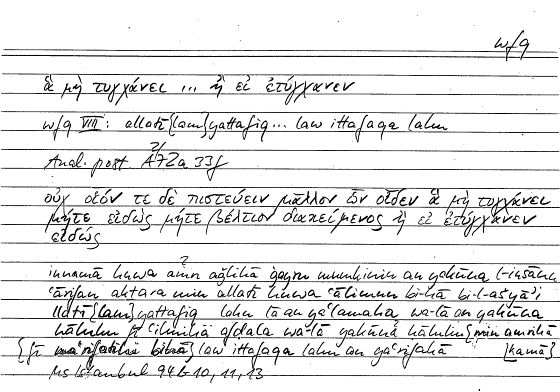 w/q
ἃ μὴ τυγχάνει ... ἢ εἰ ἐτύγχανεν
w/q VIII : allatī {lam} yattafiq ... law ittafaqa lahu
Anal. post. A 2, 72a 33f
οὐχ οἷόν τε δὲ πιστεύειν μᾶλλον ὧν οἶδεν ἃ μὴ τυγχάνει
μήτε εἰδὼς μήτε βέλτιον διακείμενος ἢ εἰ ἐτύγχανεν
εἰδώς
innamā huwa min aǧlihā ġayru mumkinin an yakūna l-insānu
ʿārifan aktara min allatī huwa ʿālimun bihā bi-l-ašyāʾi
llatī {lam} yattafiq lahu lā an yaʿlamahā wa-lā an yakūna
ḥāluhu fī ʿilmihā afḍala wa-lā yakūna ḥāluhu {min amrihā
{fī maʿrifatihī bihā} law ittafaqa lahu an yaʿrifahā [kamā}
Ms Istanbul 94b 10, 11, 13